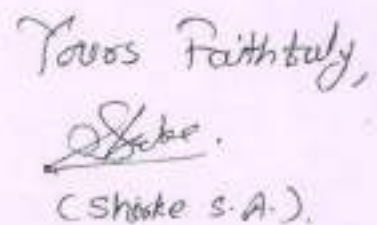 Yours Faithfuly,
(Shoke S.A.).